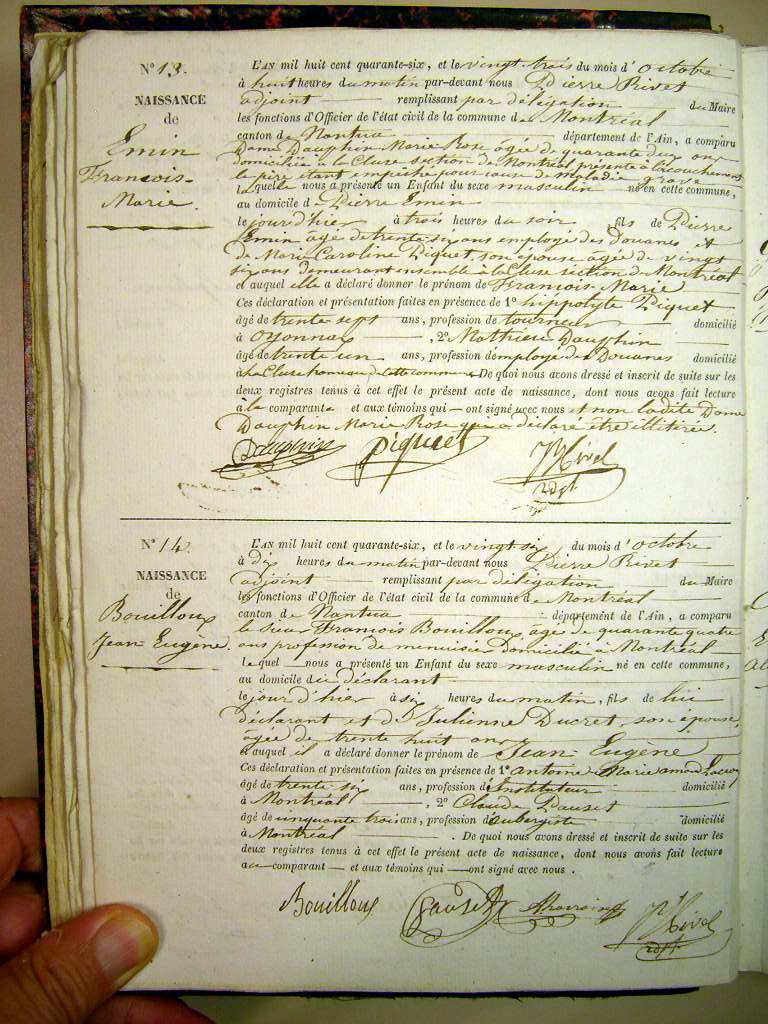 N° 13.
NAISSANCE
de
Emin
François-
Marie.
L'AN mil huit cent quarante-six, et le vingt-trois du mois d'octobre
à huit heures du matin par-devant nous Pierre Rivet
adjoint remplissant par délégation du Maire
les fonctions d'Officier de l'état civil de la commune de Montréal
canton de Nantua département de l'Ain, a comparu
Dame Dauphin Marie Rose âgée de quarante deux ans
domiciliée à la Cluse section de Montréal présente à l'accouchement
le père étant empêché pour cause de maladie grave
laquelle nous a présenté un Enfant du sexe masculin né en cette commune,
au domicile de Pierre Emin
le jour d'hier à trois heures du soir fils de Pierre
Emin âgé de trente six ans employé des douanes et
de Marie Caroline Piquet, son épouse âgée de vingt
six ans demeurant ensemble à la Cluse section de Montréal
et auquel elle a déclaré donner le prénom de François-Marie
Ces déclaration et présentation faites en présence de 1° hippolyte Piquet
âgé de trente sept ans, profession de tourneur domicilié
à Oyonnax, 2° Mathieu Dauphin
âgé de trente un ans, profession d'employé des Douanes domicilié
à la Cluse hameau de cette commune De quoi nous avons dressé et inscrit de suite sur les
deux registres tenus à cet effet le présent acte de naissance, dont nous avons fait lecture
à la comparante et aux témoins qui ont signé avec nous et non ladite Dame
Dauphin Marie Rose qui a déclaré être illitirée.
Dauphin Piquet P Rivet
adjt
N° 14.
NAISSANCE
de
Bouilloux
Jean-Eugène.
L'AN mil huit cent quarante-six, et le vingt six du mois d'octobre
à dix heures du matin par-devant nous Pierre Rivet
adjoint remplissant par délégation du Maire
les fonctions d'Officier de l'état civil de la commune de Montréal
canton de Nantua département de l'Ain, a comparu
le sieur François Bouilloux âgé de quarante quatre
ans profession de menuisier domicilié à Montréal
lequel nous a présenté un Enfant du sexe masculin né en cette commune,
au domicile du déclarant
le jour d'hier à six heures du matin, fils de lui
déclarant et de Julienne Ducret, son épouse,
âgée de trente huit ans
et auquel il a déclaré donner le prénom de Jean-Eugène
Ces déclaration et présentation faites en présence de 1° antoine Marie
âgé de trente six ans, profession d'Instituteur domicilié
à Montréal, 2° Claude Dauset
âgé de cinquante trois ans, profession d'aubergiste domicilié
à Montréal. De quoi nous avons dressé et inscrit de suite sur les
deux registres tenus à cet effet le présent acte de naissance, dont nous avons fait lecture
au comparant et aux témoins qui ont signé avec nous.
Bouilloux P Rivet
adjt